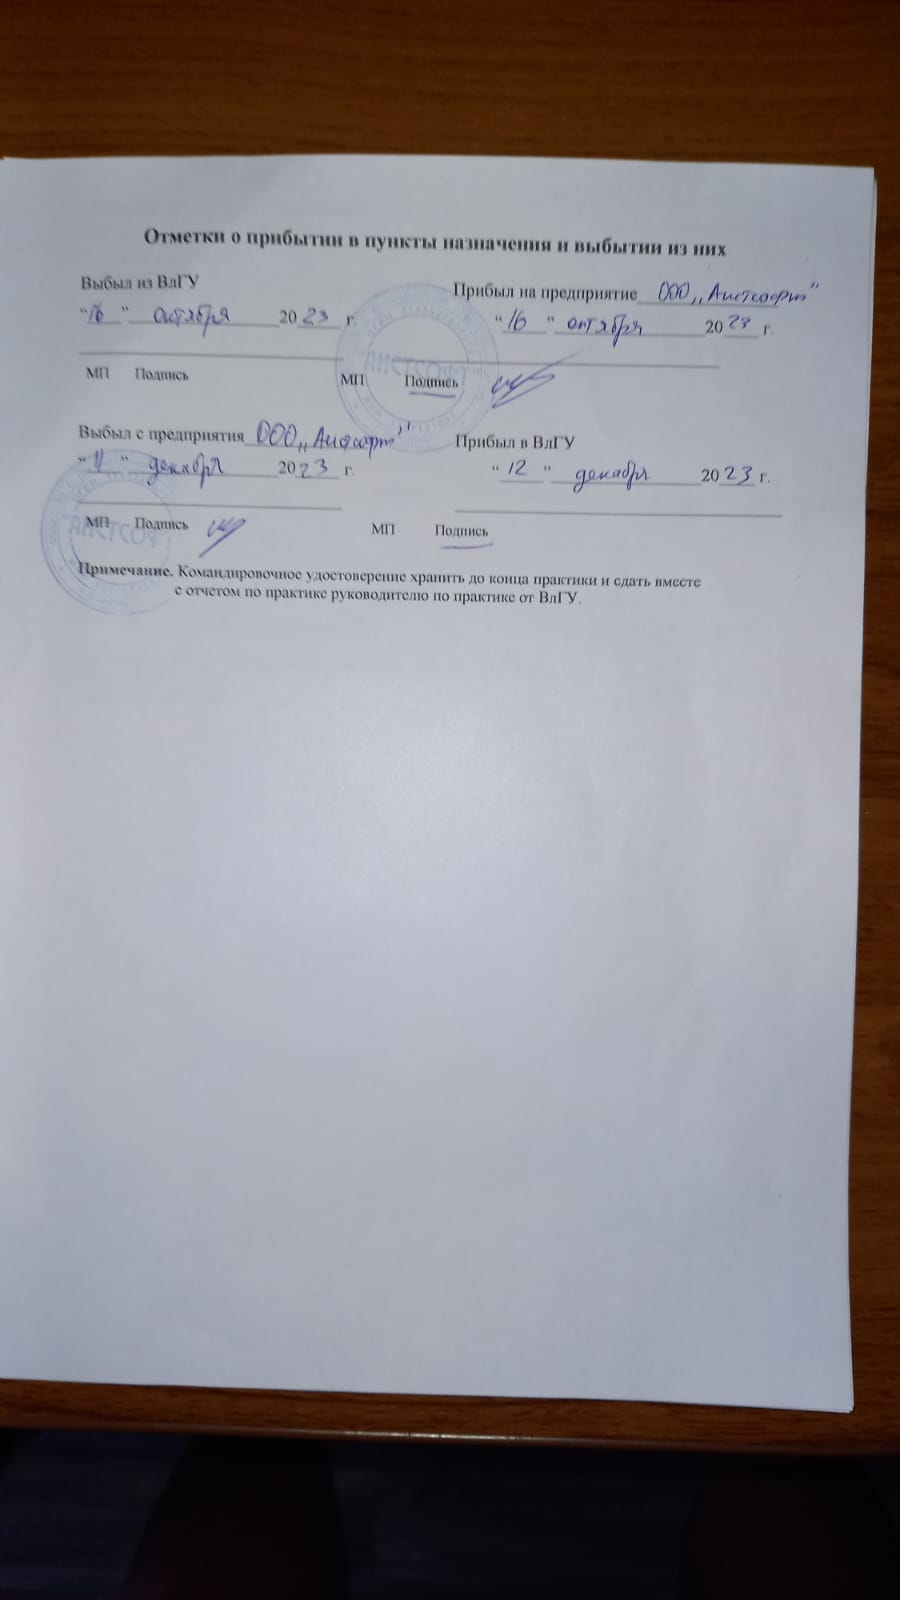 Отметки о прибытии в пункты назначения и выбытии из них
Выбыл из ВлГУ
"16" октября 2023 г.
МП Подпись
Прибыл на предприятие ООО „Аистсофт"
"16" октября 2023 г.
МП Подпись
"АИСТСОФТ"
Выбыл с предприятия ООО „Аистсофт"
"11" декабря 2023 г.
МП Подпись
"АИСТСОФТ"
Прибыл в ВлГУ
"12" декабря 2023 г.
МП Подпись
Примечание. Командировочное удостоверение хранить до конца практики и сдать вместе
с отчетом по практике руководителю по практике от ВлГУ.